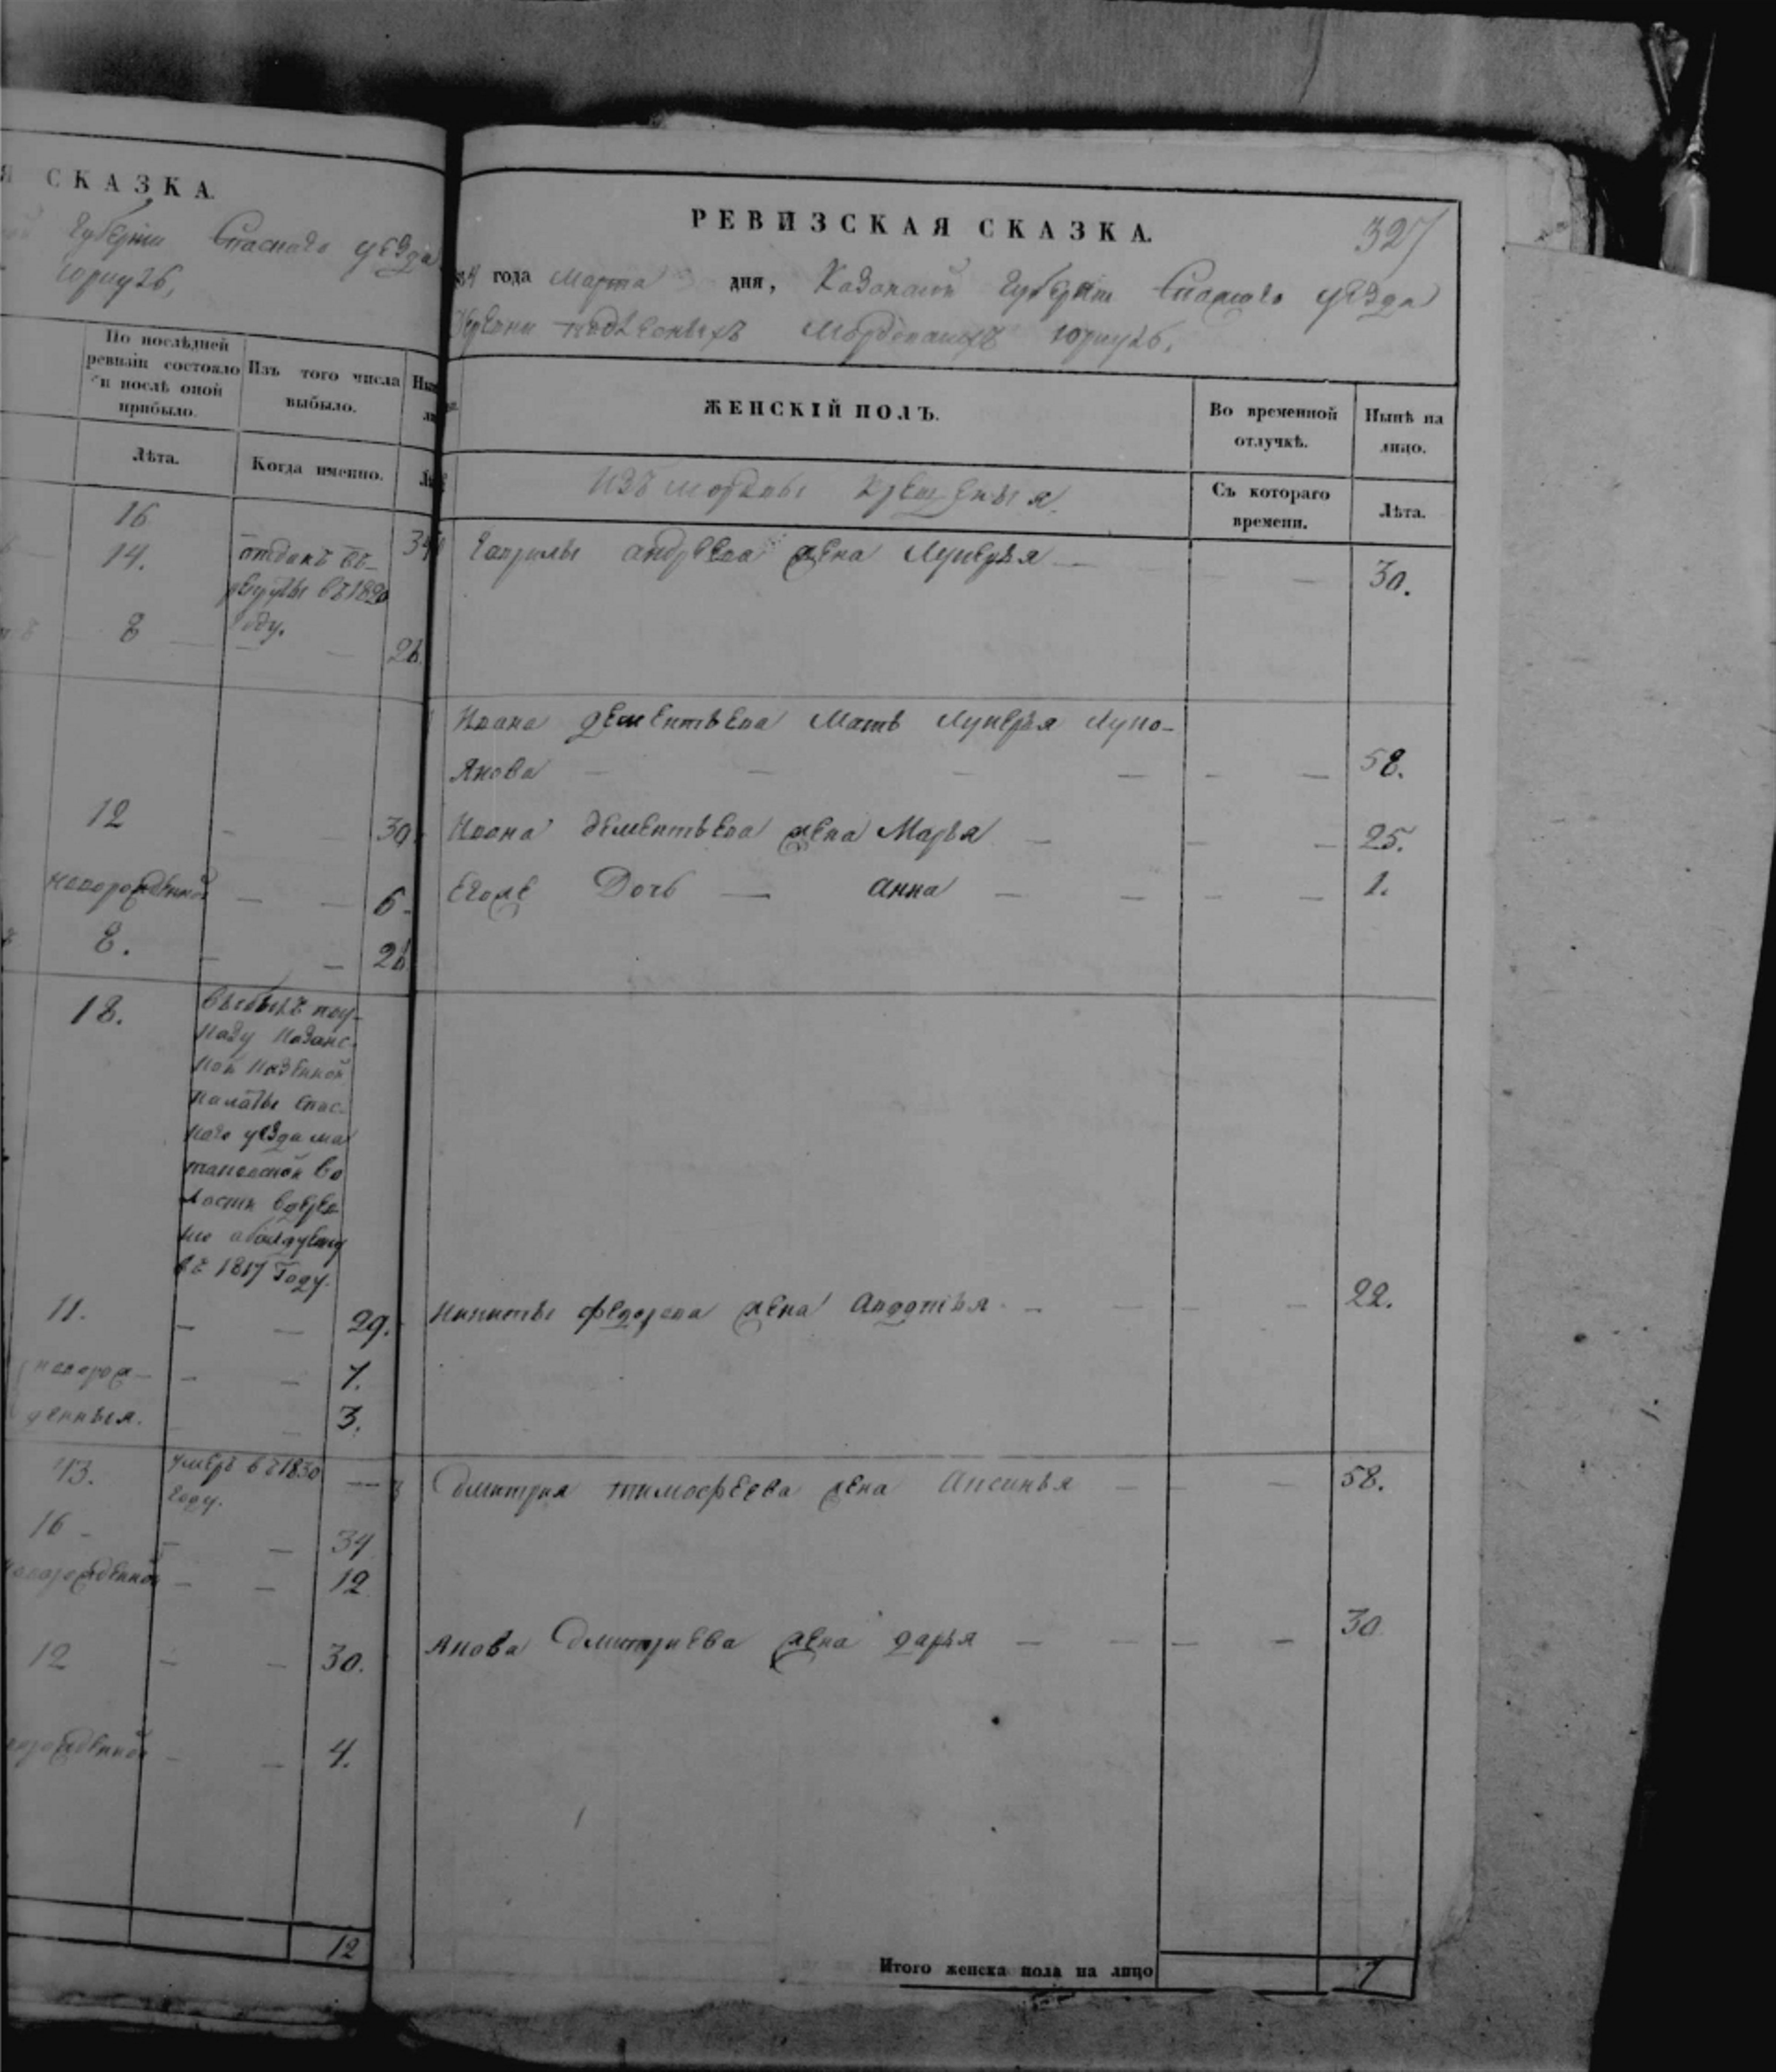 СКАЗКА.
Губернiи Спаскаго уезда
юркуль,
По послѣдней ревизiи состояло и послѣ оной прибыло.
Изъ того числа выбыло.
Лѣта.
Когда именно.
16
34
14.
отданъ въ
рекруты въ 1820
году.
8
26.
12
30
новорожденной
6
8.
26
18.
выбылъ поу-
казу Казанс-
кой Казенной
палаты Спас-
каго уезда
въ 1817 Году.
11.
29.
новорож-
7.
денныя.
3.
43.
умеръ въ 1830
году.
16
34
новорожденной
12
12
30.
новорожденной
4.
12
РЕВИЗСКАЯ СКАЗКА.
327
34 года марта дня, Казанской Губернiи Спаскаго уезда
Деревни Мордовскихъ юркуль,
ЖЕНСКIЙ ПОЛЪ.
Во временной отлучкѣ.
Нынѣ на лицо.
Изъ мордвы крещеныя.
Съ котораго времени.
Лѣта.
Гаврилы андреева жена Лукерья 30.
Ивана дементьева Мать Лукерья Лукo-
янова 58.
Ивана дементьева жена Марья 25.
Егоже Дочь — анна 1.
Никиты федорова жена авдотья 22.
Дмитрия тимофеева жена аксинья 58.
Якова Дмитриева жена дарья 30
Итого женска пола на лицо 7